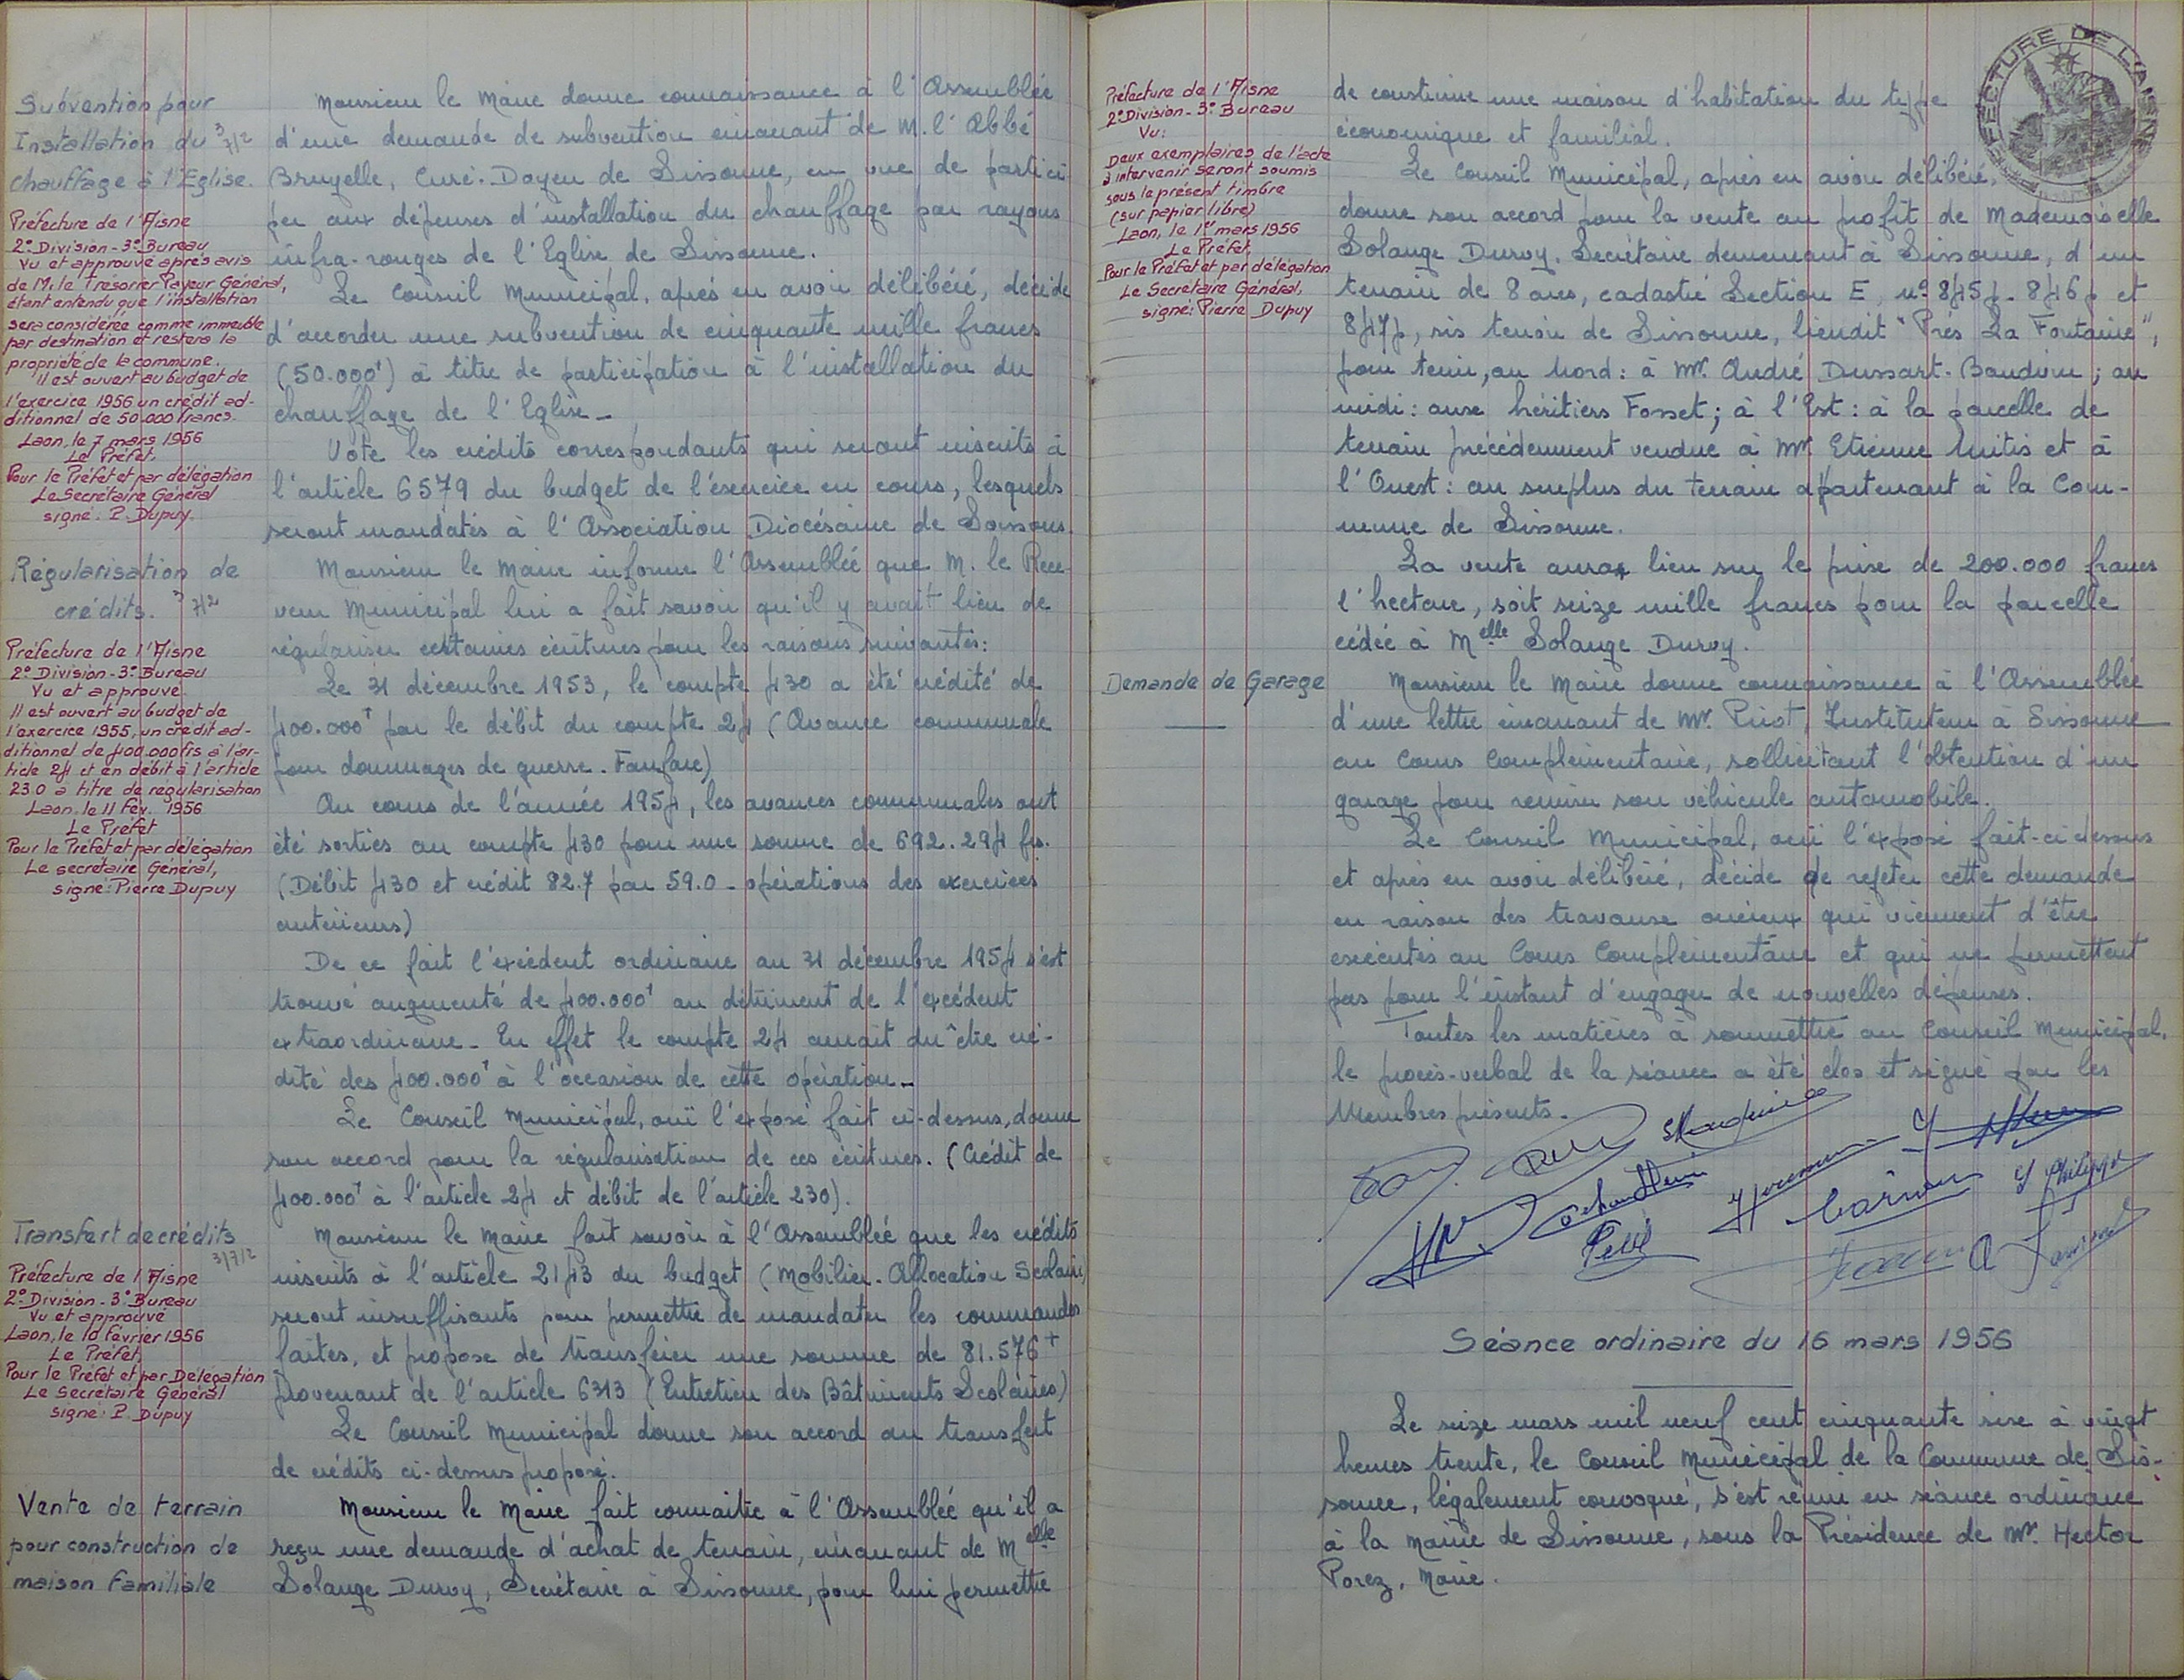 Subvention pour
Installation du 3
7/2
chauffage à l'Eglise.
Préfecture de l'Aisne
2e Division - 3e Bureau
Vu et approuvé après avis
de M. le Trésorier Payeur Général,
étant entendu que l'installation
sera considérée comme immeuble
par destination et restera la
propriété de la commune.
Il est ouvert au budget de
l'exercice 1956 un crédit ad-
ditionnel de 50.000 francs.
Laon, le 7 mars 1956
Le Préfet,
Pour le Préfet et par délégation
Le Secrétaire Général
signé: P. Dupuy
Monsieur le Maire donne connaissance à l'Assemblée
d'une demande de subvention émanant de M. l'Abbé
Bruyelle, Curé-Doyen de Sissonne, en vue de partici
per aux dépenses d'installation du chauffage par rayons
infra-rouges de l'Eglise de Sissonne.
Le Conseil Municipal, après en avoir délibéré, décide
d'accorder une subvention de cinquante mille francs
(50.000f) à titre de participation à l'installation du
chauffage de l'Eglise -
Vote les crédits correspondants qui seront inscrits à
l'article 6579 du budget de l'éxercice en cours, lesquels
seront mandatés à l'Association Diocésaine de Soissons.
Régularisation de
crédits. 3
7/2
Préfecture de l'Aisne
2e Division - 3e Bureau
Vu et approuvé
Il est ouvert au budget de
l'exercice 1955, un crédit ad-
ditionnel de 400.000 frs à l'ar-
ticle 24 et en débit à l'article
23.0 à titre de régularisation
Laon, le 11 Fév. 1956
Le Préfet
Pour le Préfet et par délégation
Le secrétaire Général,
signé: Pierre Dupuy
Monsieur le Maire informe l'Assemblée que M. le Rece-
veur Municipal lui a fait savoir qu'il y avait lieu de
régulariser certaines écritures pour les raisons suivantes:
Le 31 décembre 1953, le compte 430 a été crédité de
400.000f par le débit du compte 24 (Avance communale
pour dommages de guerre. Fanfare)
Au cours de l'année 1954, les avances communales ont
été sorties au compte 430 pour une somme de 692.294 frs.
(Débit 430 et crédit 82.7 par 59.0 - opérations des exercices
antérieurs)
De ce fait l'excédent ordinaire au 31 décembre 1954 s'est
trouvé augmenté de 400.000f au détriment de l'excédent
extraordinaire - En effet le compte 24 aurait dû être cré-
dité des 400.000f à l'occasion de cette opération -
Le Conseil Municipal, ouï l'exposé fait ci-dessus, donne
son accord pour la régularisation de ces écritures. (Crédit de
400.000f à l'article 24 et débit de l'article 230).
Transfert de crédits
3/7/2
Préfecture de l'Aisne
2e Division - 3e Bureau
Vu et approuvé
Laon, le 10 février 1956
Le Préfet,
Pour le Préfet et par Délégation
Le Secrétaire Général
signé: P. Dupuy
Monsieur le Maire fait savoir à l'Assemblée que les crédits
inscrits à l'article 2143 du budget (Mobilier. Allocation Scolaire)
seront insuffisants pour permettre de mandater les commandes
faites, et propose de transférer une somme de 81.576f
provenant de l'article 6313 (Entretien des Bâtiments Scolaires)
Le Conseil Municipal donne son accord au transfert
de crédits ci-dessus proposé.
Vente de terrain
pour construction de
maison familiale
Monsieur le Maire fait connaitre à l'Assemblée qu'il a
reçu une demande d'achat de terrain, émanant de Melle
Solange Duroy, Secrétaire à Sissonne, pour lui permettre
PREFECTURE DE L'AISNE
Préfecture de l'Aisne
2e Division - 3e Bureau
Vu:
Deux exemplaires de l'acte
à intervenir seront soumis
sous le présent timbre
(sur papier libre)
Laon, le 1er mars 1956
Le Préfet,
Pour le Préfet et par délégation
Le Secrétaire Général,
signé: Pierre Dupuy
de construire une maison d'habitation du type
économique et familial.
Le Conseil Municipal, après en avoir délibéré,
donne son accord pour la vente au profit de Mademoiselle
Solange Duroy, Secrétaire demeurant à Sissonne, d'un
terrain de 8 ares, cadastré Section E, n° 845p - 846p et
847p, sis terroir de Sissonne, lieudit "Près La Fontaine",
pour tenir, au Nord: à Mr. André Dussart-Baudoin; au
midi: aux héritiers Fosset; à l'Est: à la parcelle de
terrain précédemment vendue à Mr. Etienne Mitis et à
l'Ouest: au surplus du terrain appartenant à la Com-
mune de Sissonne.
La vente aura lieu sur le prix de 200.000 francs
l'hectare, soit seize mille francs pour la parcelle
cédée à Melle Solange Duroy.
Demande de Garage
Monsieur le Maire donne connaissance à l'Assemblée
d'une lettre émanant de Mr. Piriot, Instituteur à Sissonne
au Cours Complémentaire, sollicitant l'obtention d'un
garage pour remiser son véhicule automobile.
Le Conseil Municipal, ouï l'exposé fait-ci dessus
et après en avoir délibéré, décide de rejeter cette demande
en raison des travaux onéreux qui viennent d'être
exécutés au Cours Complémentaire et qui ne permettent
pas pour l'instant d'engager de nouvelles dépenses.
Toutes les matières à soumettre au Conseil Municipal,
le procès-verbal de la séance a été clos et signé par les
Membres présents.
Y Philippe
Petit
Séance ordinaire du 16 mars 1956
Le seize mars mil neuf cent cinquante six à vingt
heures trente, le Conseil Municipal de la Commune de Sis-
sonne, légalement convoqué, s'est réuni en séance ordinaire
à la Mairie de Sissonne, sous la Présidence de Mr. Hector
Porez, Maire.